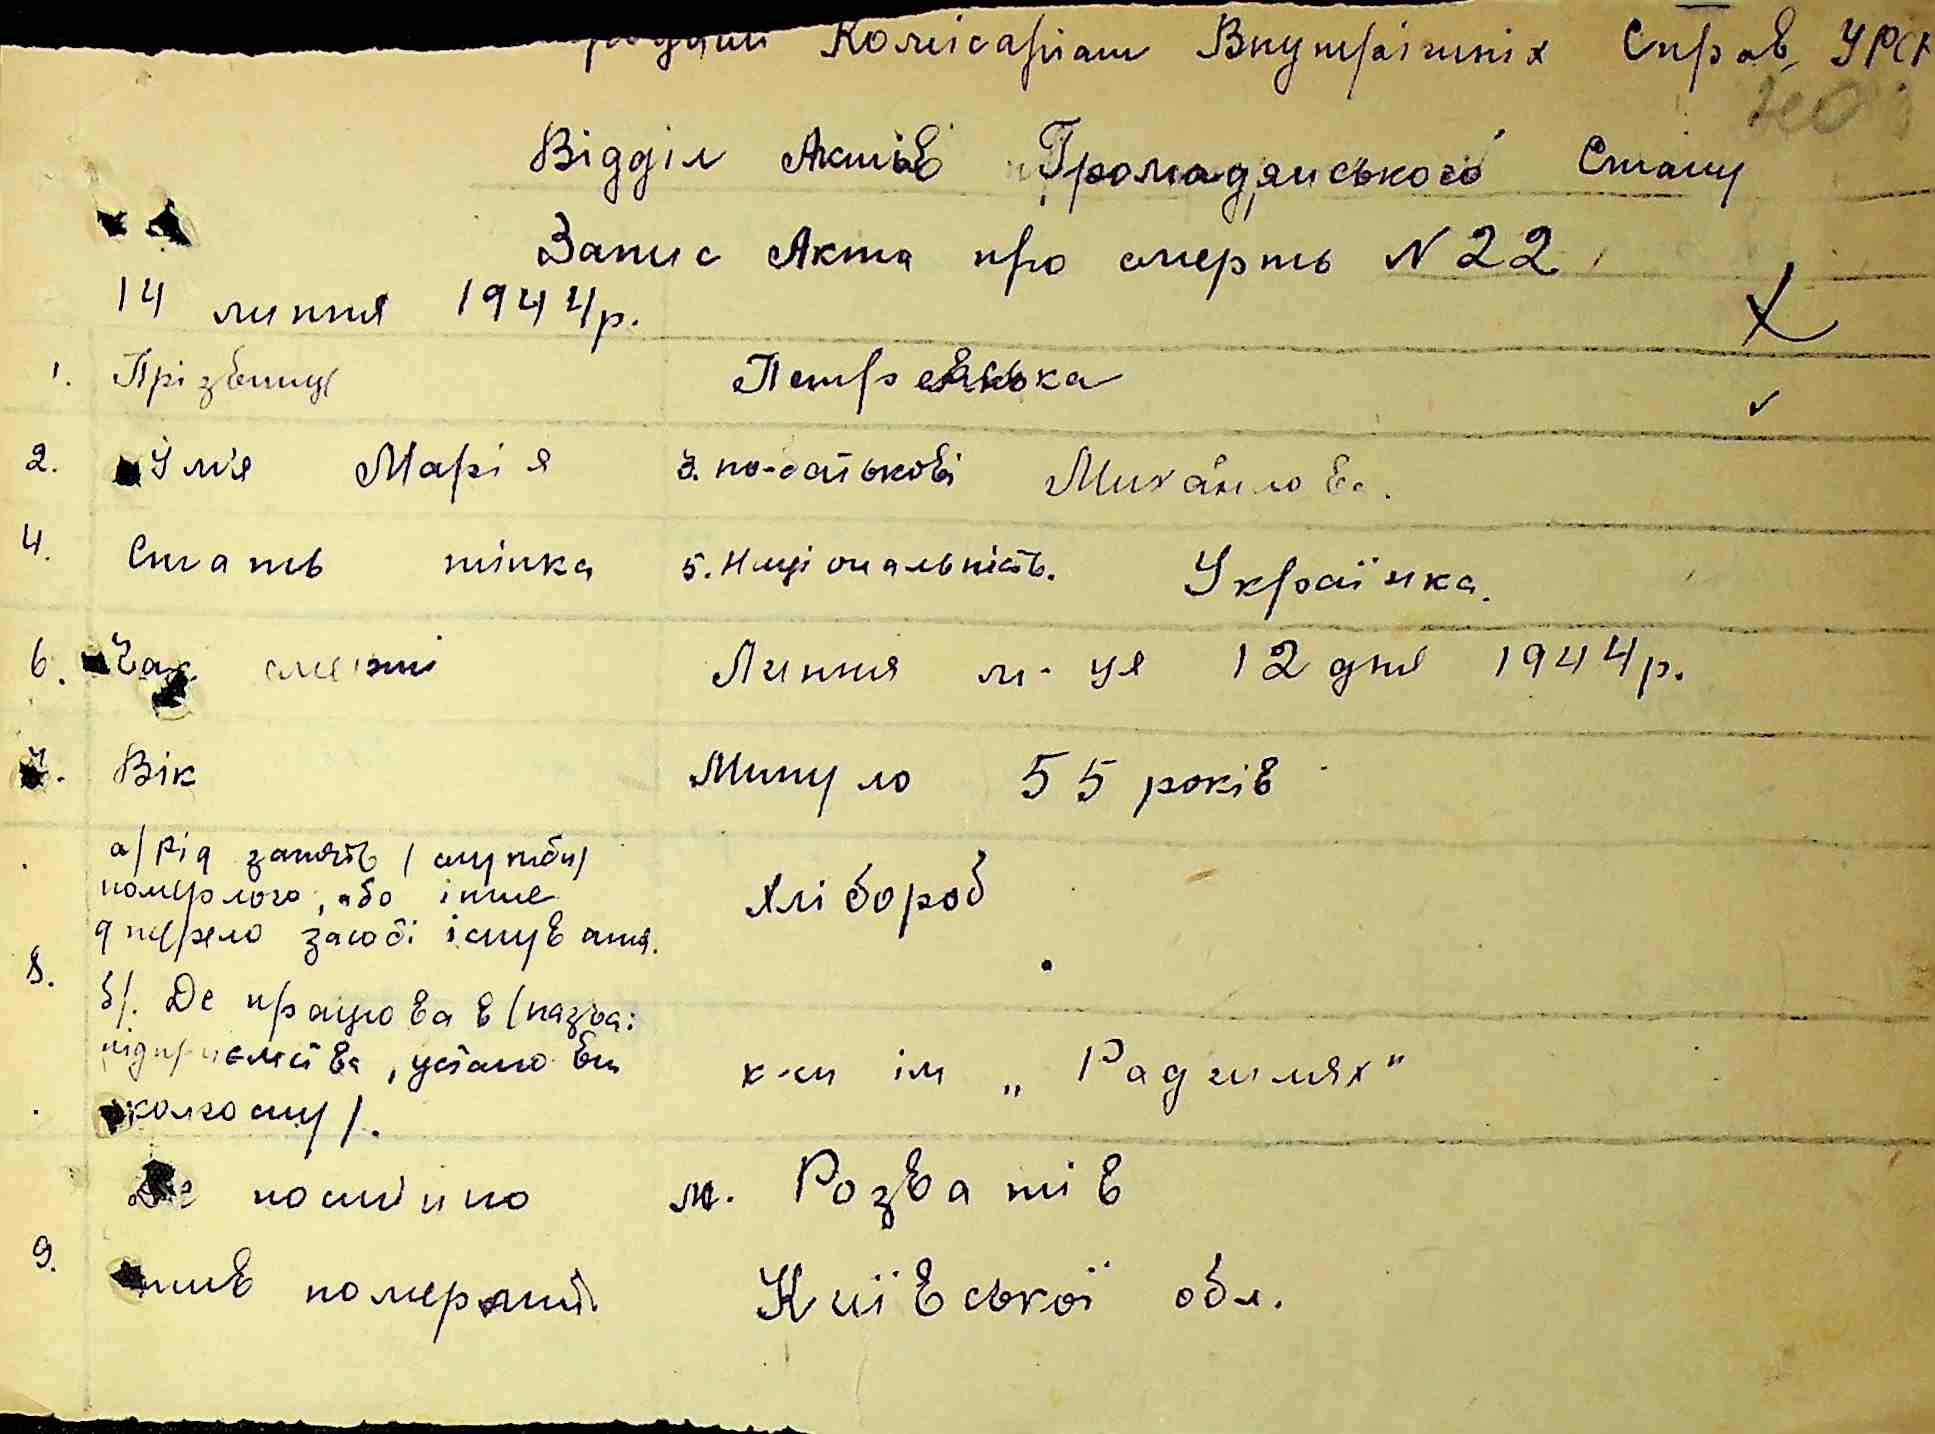 Комісаріат Внутрішніх Справ УРСР
Відділ Актів Громадянського Стану
Запис Акта про смерть N 22
14 липня 1944р.
1. Прізвище Петренька
2. Ім'я Марія 3. по-батькові Михайлова.
4. Стать жінка 5. Національність. Українка.
6. Час смерті Липня м-ця 12 дня 1944р.
7. Вік Минуло 55 років
а/ Рід занять / служби/
померлого, або інше
джерело засобі існування. Хлібороб
8.
б/. Де працював /назва:
підприємства, установи к-сп ім „Радшлях"
колгоспу/.
Де постійно м. Розважів
9.
жив померлий. Київської обл.